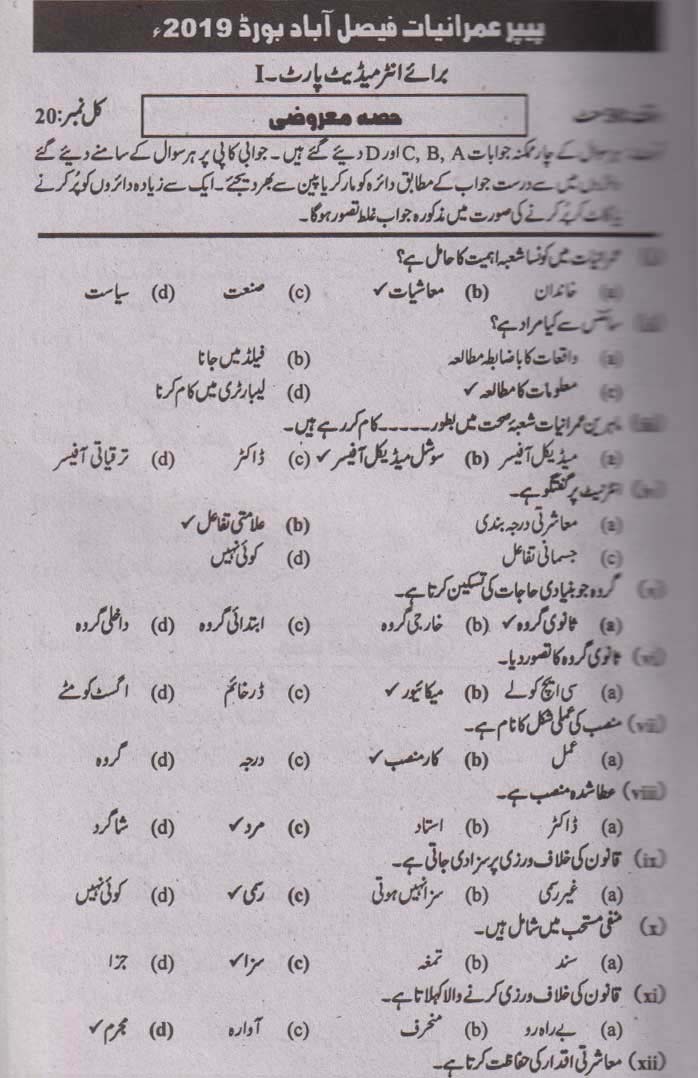 پیپر عمرانیات فیصل آباد بورڈ 2019ء
برائے انٹرمیڈیٹ پارٹ۔I
حصہ معروضی کل نمبر:20
ہر سوال کے چار ممکنہ جوابات C, B, A اور D دیئے گئے ہیں۔ جوابی کاپی پر ہر سوال کے سامنے دیئے گئے
دائروں میں سے درست جواب کے مطابق دائرہ کو مارکر یا پین سے بھر دیجئے۔ ایک سے زیادہ دائروں کو پُر کرنے
یا کاٹ کر پُر کرنے کی صورت میں مذکورہ جواب غلط تصور ہوگا۔
(i) عمرانیات میں کونسا شعبہ اہمیت کا حامل ہے؟
(a) خاندان (b) معاشیات ✓ (c) صنعت (d) سیاست
(ii) سائنس سے کیا مراد ہے؟
(a) واقعات کا باضابطہ مطالعہ (b) فیلڈ میں جانا
(c) معلومات کا مطالعہ ✓ (d) لیبارٹری میں کام کرنا
(iii) ماہرین عمرانیات شعبۂ صحت میں بطور۔۔۔۔۔کام کر رہے ہیں۔
(a) میڈیکل آفیسر (b) سوشل میڈیکل آفیسر ✓ (c) ڈاکٹر (d) ترقیاتی آفیسر
(iv) انٹرنیٹ پر گفتگو ہے۔
(a) معاشرتی درجہ بندی (b) علامتی تفاعل ✓
(c) جسمانی تفاعل (d) کوئی نہیں
(v) گروہ جو بنیادی حاجات کی تسکین کرتا ہے۔
(a) ثانوی گروہ ✓ (b) خارجی گروہ (c) ابتدائی گروہ (d) داخلی گروہ
(vi) ثانوی گروہ کا تصور دیا۔
(a) سی ایچ کولے (b) میکائیور ✓ (c) ڈرخائم (d) اگسٹ کومٹے
(vii) منصب کی عملی شکل کا نام ہے۔
(a) عمل (b) کار منصب ✓ (c) درجہ (d) گروہ
(viii) عطا شدہ منصب ہے۔
(a) ڈاکٹر (b) استاد (c) مرد ✓ (d) شاگرد
(ix) قانون کی خلاف ورزی پر سزا دی جاتی ہے۔
(a) غیر رسمی (b) سزا نہیں ہوتی (c) رسمی ✓ (d) کوئی نہیں
(x) منفی مستحب میں شامل ہیں۔
(a) سند (b) تمغہ (c) سزا ✓ (d) جزا
(xi) قانون کی خلاف ورزی کرنے والا کہلاتا ہے۔
(a) بے راہ رو (b) منحرف (c) آوارہ (d) مجرم ✓
(xii) معاشرتی اقدار کی حفاظت کرتا ہے۔